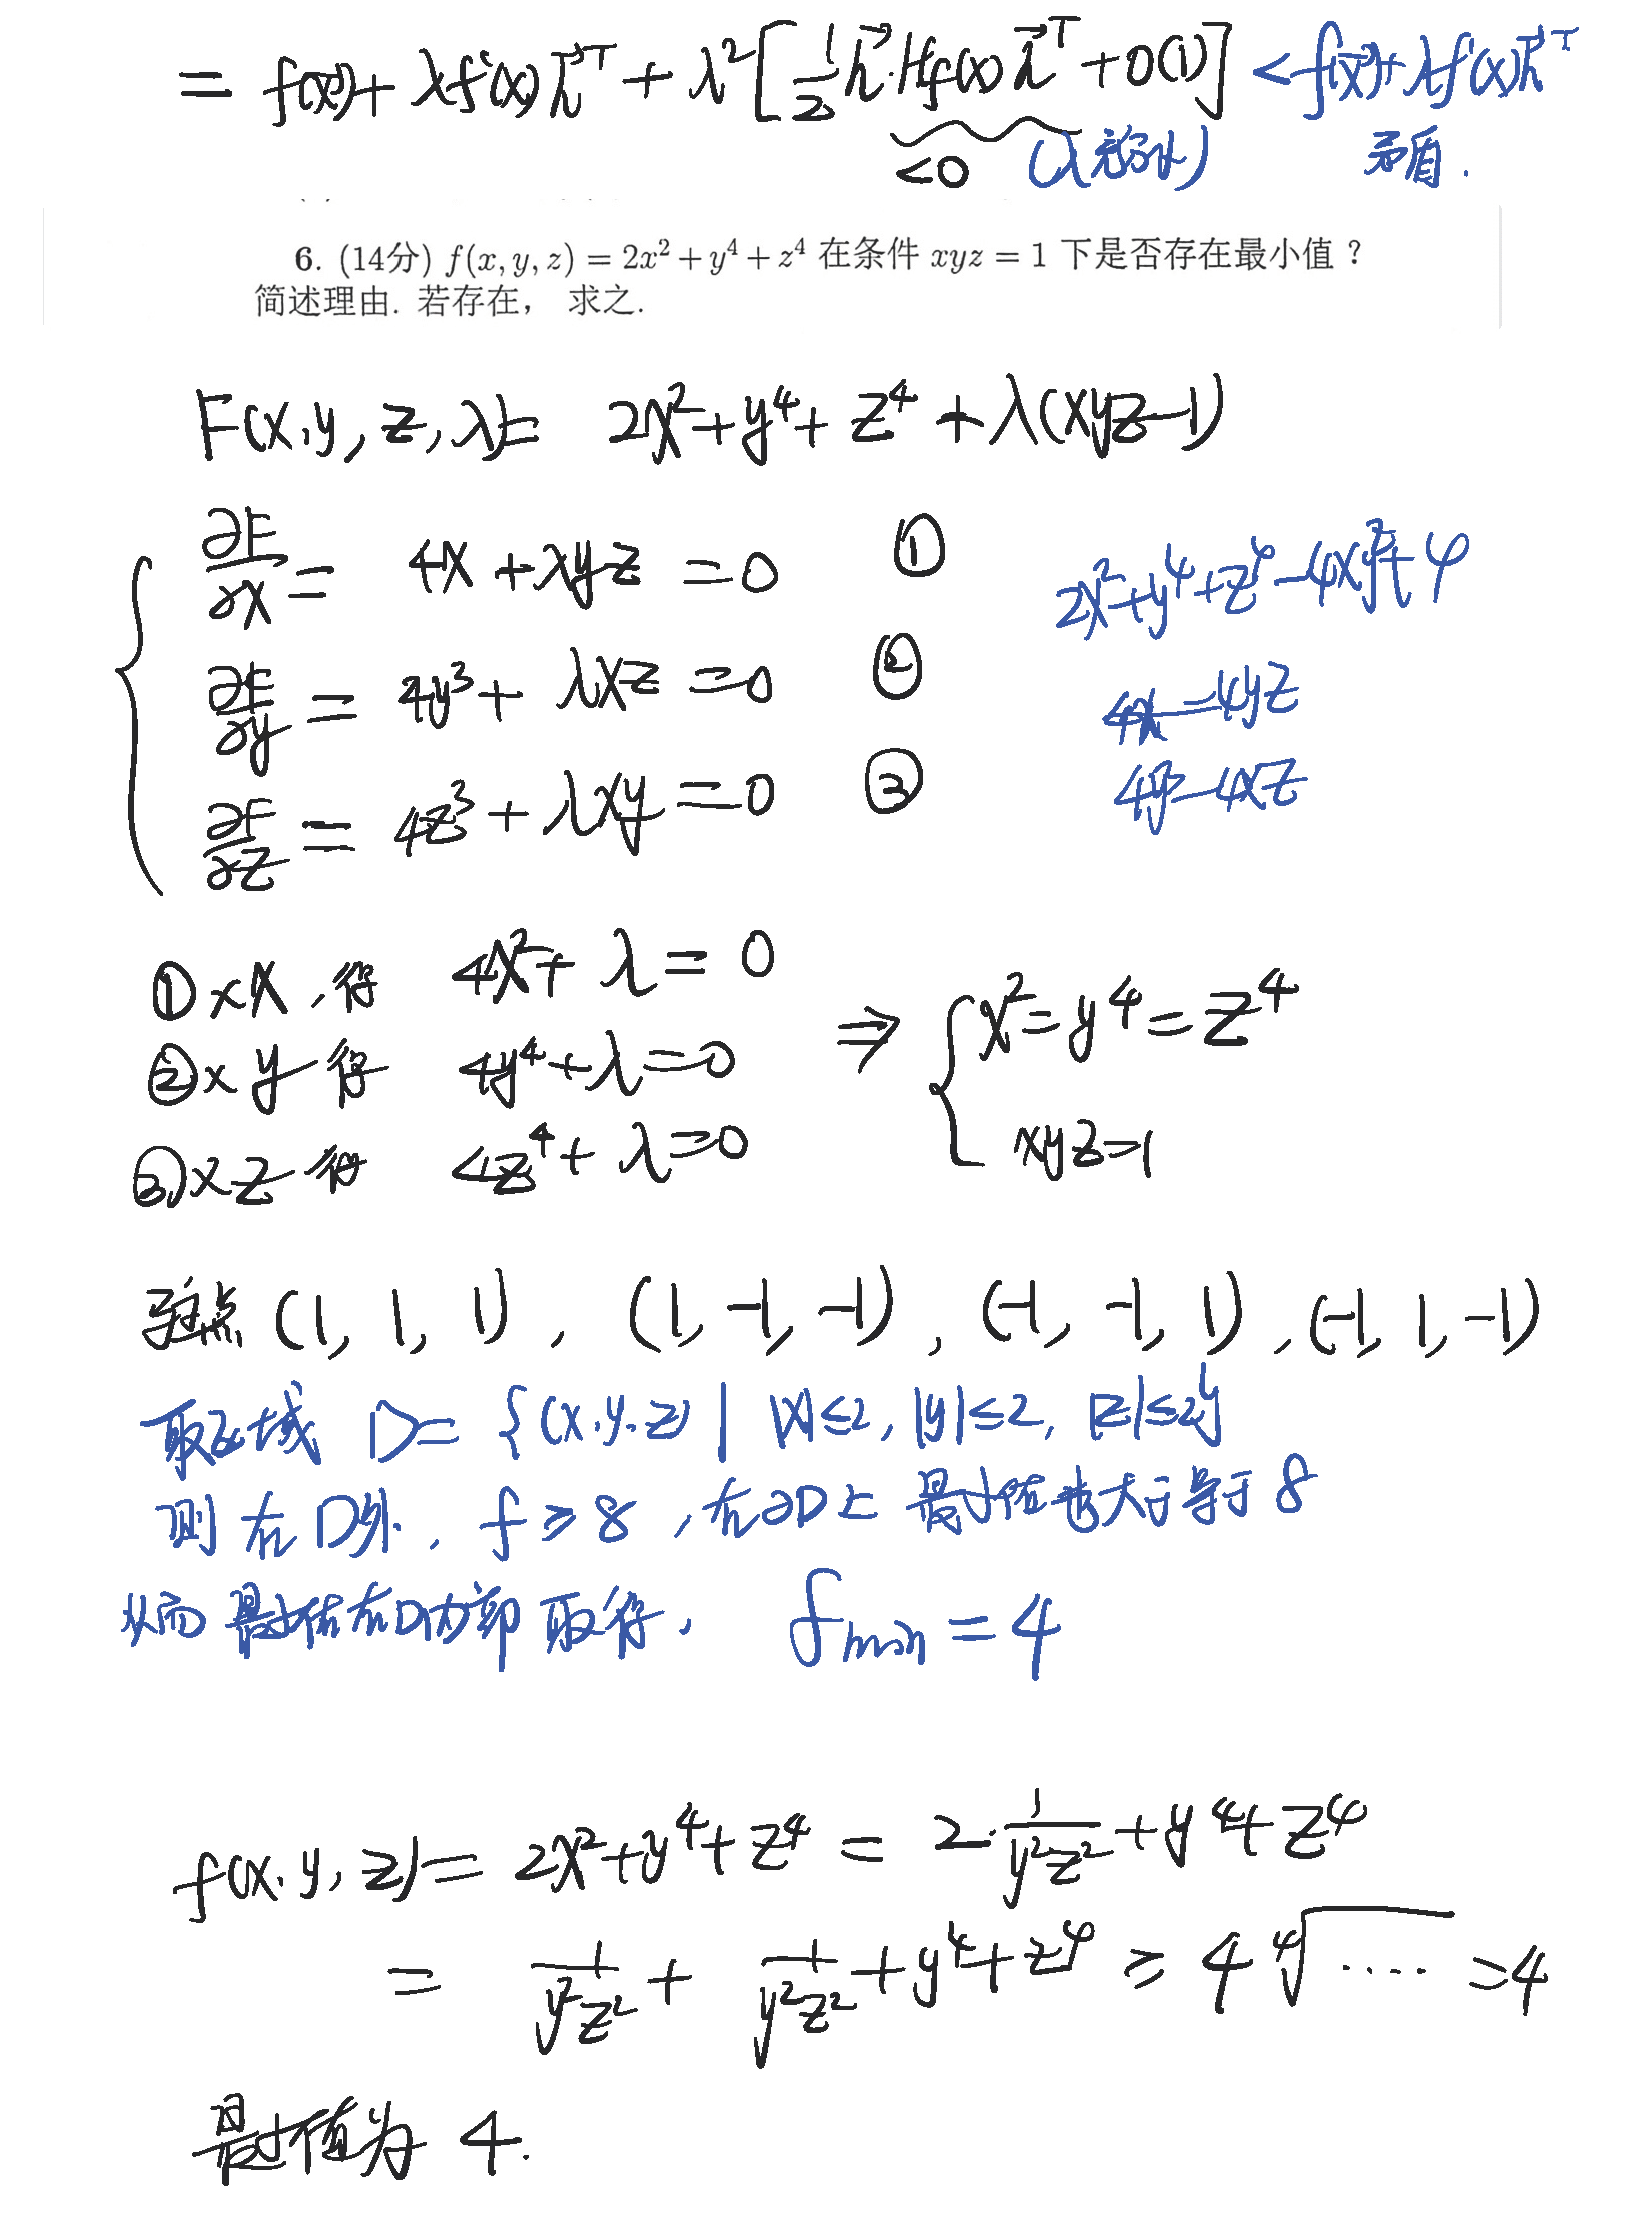 = f(x⃗)+ λf'(x)h⃗ᵀ + λ²[½h⃗·Hf(x)h⃗ᵀ+o(1)] < f(x⃗)+λf'(x)h⃗ᵀ
<0 (λ充分小) 矛盾.
6. (14分) f(x, y, z) = 2x² + y⁴ + z⁴ 在条件 xyz = 1 下是否存在最小值？
简述理由. 若存在， 求之.
F(x,y,z,λ)= 2x²+y⁴+z⁴+λ(xyz-1)
∂F/∂x = 4x+λyz=0 ①
2x²+y⁴+z⁴-4xyz+4
∂F/∂y = 4y³+λxz=0 ②
4x-4yz
∂F/∂z = 4z³+λxy=0 ③
4y³-4xz
①×x,得 4x²+λ=0
②×y 得 4y⁴+λ=0 ⇒ { x²=y⁴=z⁴
③×z 得 4z⁴+λ=0 xyz=1
驻点 (1, 1, 1), (1, -1, -1), (-1, -1, 1), (-1, 1, -1)
取区域 D= {(x,y,z) | |x|≤2, |y|≤2, |z|≤2}
则在D外, f≥8, 在∂D上 最小值也大于等于8
从而最小值在D内部取得, fmin=4
f(x,y,z)= 2x²+y⁴+z⁴ = 2·1/(y²z²)+y⁴+z⁴
= 1/(y²z²) + 1/(y²z²) + y⁴+z⁴ ≥ 4 ⁴√····· =4
最小值为 4.